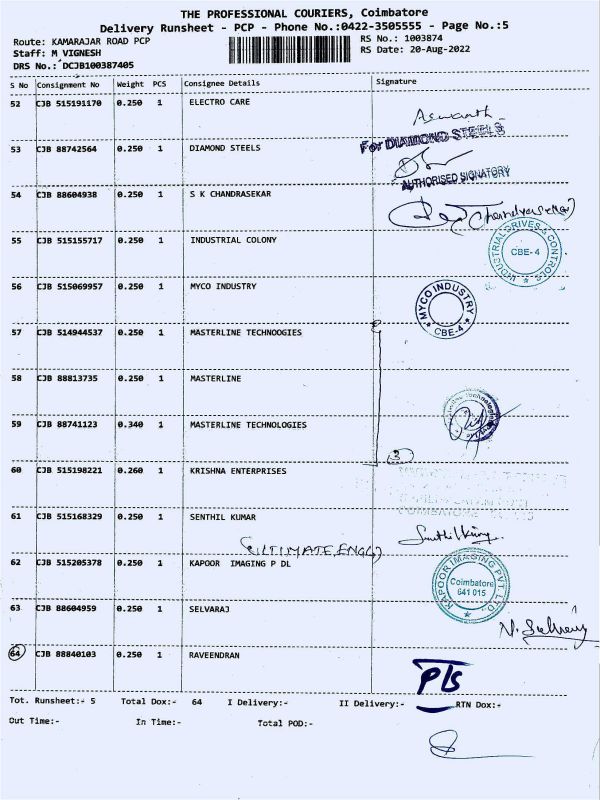 THE PROFESSIONAL COURIERS, Coimbatore
Delivery Runsheet - PCP - Phone No.:0422-3505555 - Page No.:5
Route: KAMARAJAR ROAD PCP
RS No.: 1003874
Staff: M VIGNESH
RS Date: 20-Aug-2022
DRS No.: DCJB100387405
S No Consignment No Weight PCS Consignee Details Signature
52 CJB 515191170 0.250 1 ELECTRO CARE
Aswanth
53 CJB 88742564 0.250 1 DIAMOND STEELS
For DIAMOND STEELS
AUTHORISED SIGNATORY
54 CJB 88604938 0.250 1 S K CHANDRASEKAR
55 CJB 515155717 0.250 1 INDUSTRIAL COLONY
INDUSTRIAL DRIVES & CONTROLS
CBE-4
56 CJB 515069957 0.250 1 MYCO INDUSTRY
MYCO INDUSTRY
CBE-4
57 CJB 514944537 0.250 1 MASTERLINE TECHNOOGIES
58 CJB 88813735 0.250 1 MASTERLINE
59 CJB 88741123 0.340 1 MASTERLINE TECHNOLOGIES
3
60 CJB 515198221 0.260 1 KRISHNA ENTERPRISES
61 CJB 515168329 0.250 1 SENTHIL KUMAR
(ULTIMATE ENGG)
62 CJB 515205378 0.250 1 KAPOOR IMAGING P DL
KAPOOR IMAGING PVT. LTD
Coimbatore
641 015
63 CJB 88604959 0.250 1 SELVARAJ
64 CJB 88840103 0.250 1 RAVEENDRAN
Tot. Runsheet:- 5 Total Dox:- 64 I Delivery:- II Delivery:- RTN Dox:-
Out Time:- In Time:- Total POD:-